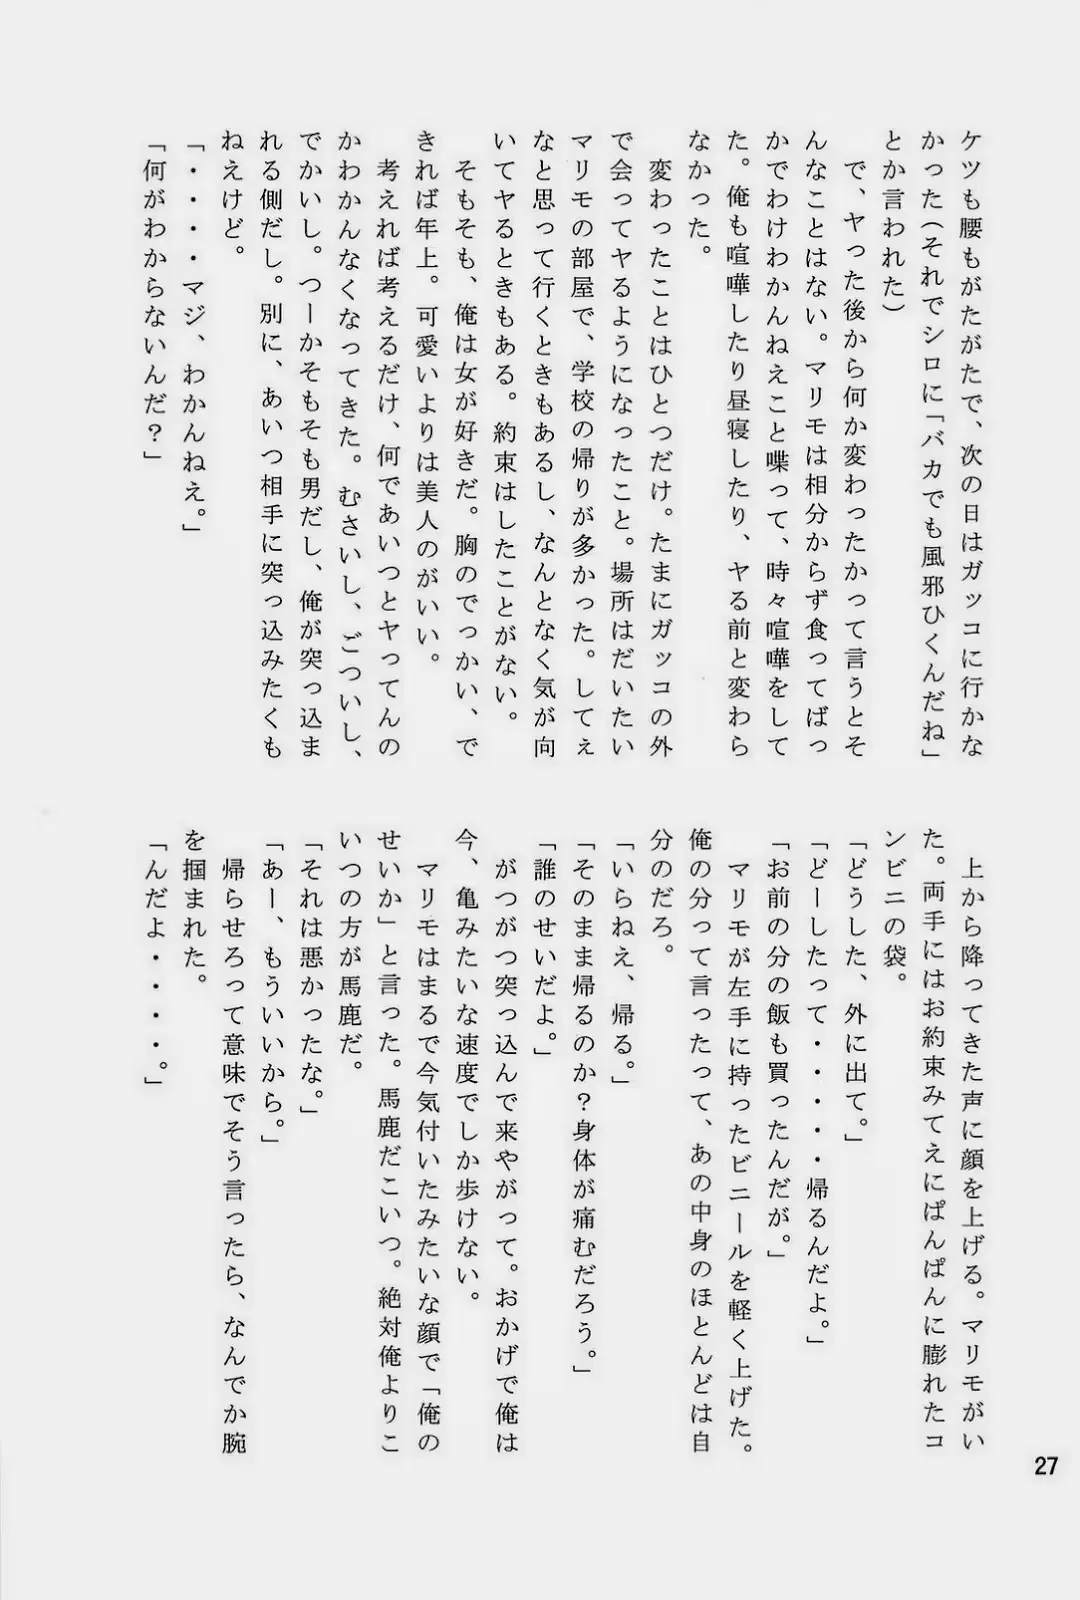 ケツも腰もがたがたで、次の日はガッコに行かな
かった(それでシロに「バカでも風邪ひくんだね」
とか言われた)
で、ヤった後から何か変わったかって言うとそ
んなことはない。マリモは相分からず食ってばっ
かでわけわかんねえこと喋って、時々喧嘩をして
た。俺も喧嘩したり昼寝したり、ヤる前と変わら
なかった。
変わったことはひとつだけ。たまにガッコの外
で会ってヤるようになったこと。場所はだいたい
マリモの部屋で、学校の帰りが多かった。してぇ
なと思って行くときもあるし、なんとなく気が向
いてヤるときもある。約束はしたことがない。
そもそも、俺は女が好きだ。胸のでっかい、で
きれば年上。可愛いよりは美人のがいい。
考えれば考えるだけ、何であいつとヤってんの
かわかんなくなってきた。むさいし、ごついし、
でかいし。つーかそもそも男だし、俺が突っ込ま
れる側だし。別に、あいつ相手に突っ込みたくも
ねえけど。
「・・・・マジ、わかんねえ。」
「何がわからないんだ?」
上から降ってきた声に顔を上げる。マリモがい
た。両手にはお約束みてえにぱんぱんに膨れたコ
ンビニの袋。
「どうした、外に出て。」
「どーしたって・・・・帰るんだよ。」
「お前の分の飯も買ったんだが。」
マリモが左手に持ったビニールを軽く上げた。
俺の分って言ったって、あの中身のほとんどは自
分のだろ。
「いらねえ、帰る。」
「そのまま帰るのか?身体が痛むだろう。」
「誰のせいだよ。」
がつがつ突っ込んで来やがって。おかげで俺は
今、亀みたいな速度でしか歩けない。
マリモはまるで今気付いたみたいな顔で「俺の
せいか」と言った。馬鹿だこいつ。絶対俺よりこ
いつの方が馬鹿だ。
「それは悪かったな。」
「あー、もういいから。」
帰らせろって意味でそう言ったら、なんでか腕
を掴まれた。
「んだよ・・・・。」
27